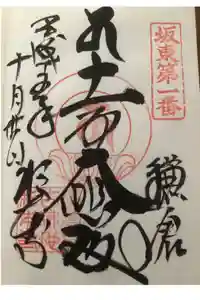 坂東第一番
鎌倉
十一面大悲殿
平成五年
十月廿
杉本寺